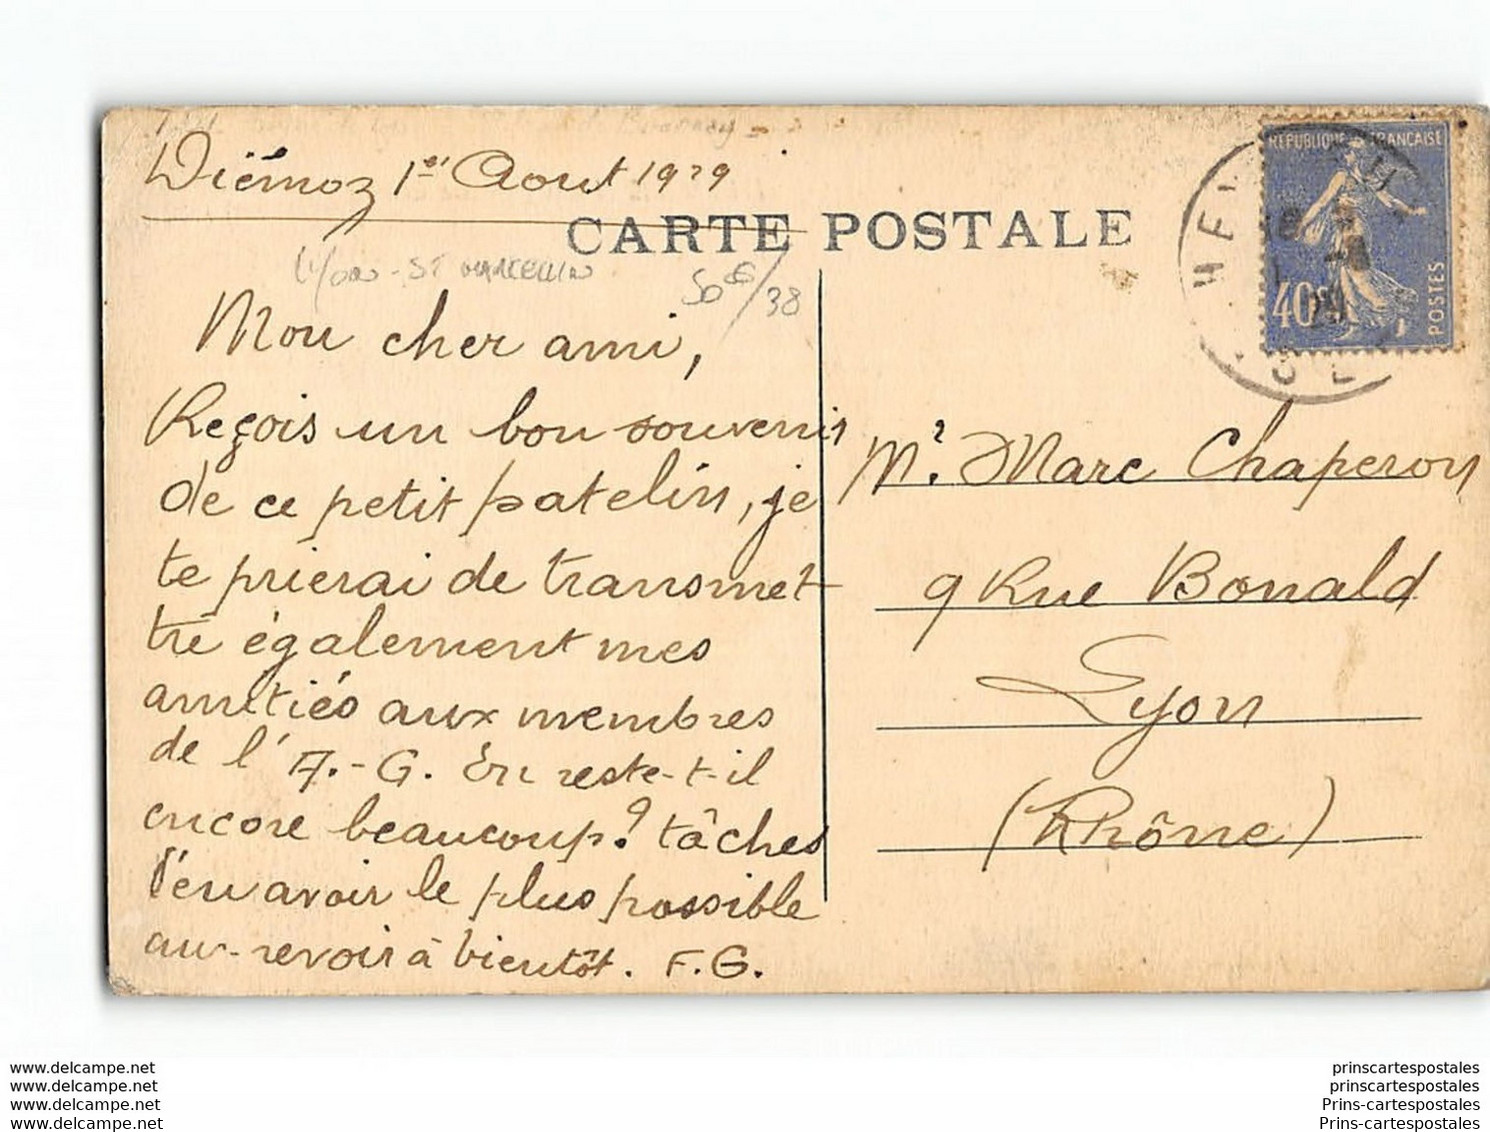 Diémoz 1er Aout 1929
CARTE POSTALE
Lyon - ST MARCELLIN
50€/38
Mon cher ami,
Reçois un bon souvenir
de ce petit patelin, je
te prierai de transmet
tre également mes
amitiés aux membres
de l'A.-G. En reste-t-il
encore beaucoup? tâches
d'en avoir le plus possible
au-revoir à bientôt. F.G.
REPUBLIQUE FRANÇAISE
40c
POSTES
Mr. Marc Chaperon
9 Rue Bonald
Lyon
(Rhône)
www.delcampe.net
www.delcampe.net
www.delcampe.net
www.delcampe.net
prinscartespostales
prinscartespostales
Prins-cartespostales
Prins-cartespostales